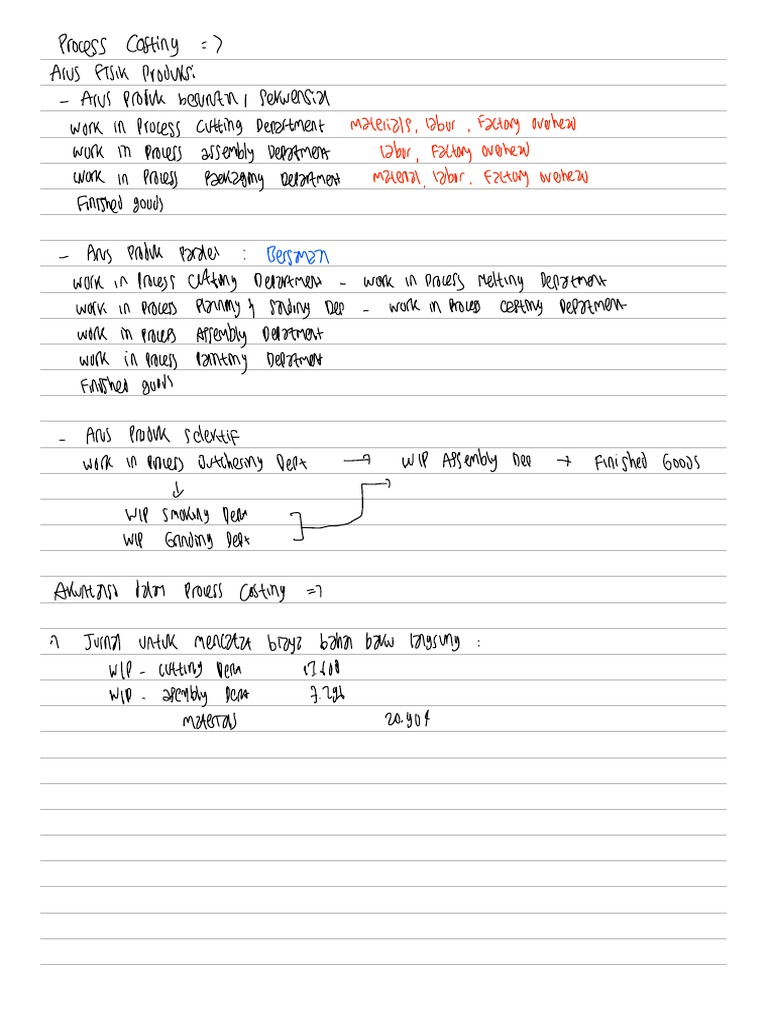 Process Costing =>
Arus Fisik Produksi:
- Arus Produk berurutan / Sekuensial
Work in Process Cutting Department Materials, labor, Factory overhead
Work in Process assembly Department labor, Factory overhead
Work in Process Packaging Department Material, labor, Factory overhead
Finished goods
- Arus Produk Paralel : Bersamaan
Work in Process Cutting Department - Work in Process Melting Department
Work in Process Planning & Sanding Dep - Work in Process Casting Department
Work in Process Assembly Department
Work in Process Painting Department
Finished goods
- Arus Produk Selektif
Work in Process Butchering Dept → WIP Assembly Dep → Finished Goods
↓
WIP Smoking Dept
WIP Grinding Dept
Akuntansi dalam Process Costing =>
Jurnal untuk mencatat biaya bahan baku langsung :
WIP - Cutting Dept
WIP - assembly Dept 7.296
Materials 20.904